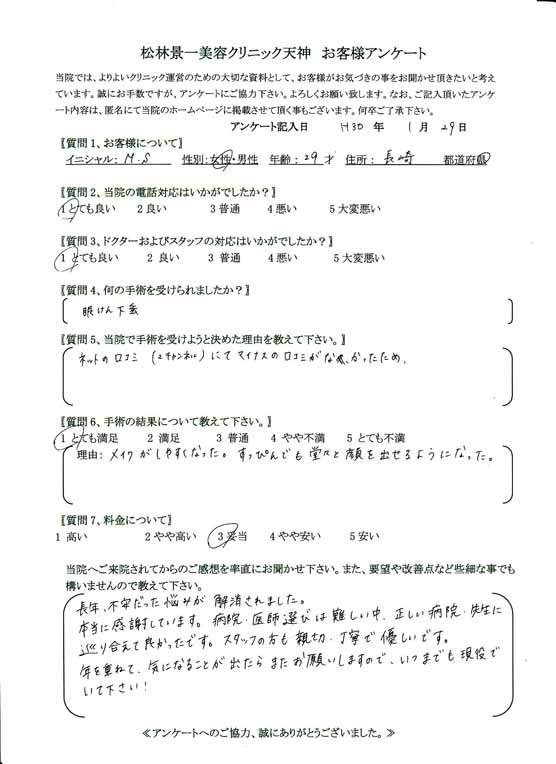 松林景一美容クリニック天神 お客様アンケート
当院では、よりよいクリニック運営のための大切な資料として、お客様がお気づきの事をお聞かせ頂きたいと考え
ています。誠にお手数ですが、アンケートにご協力下さい。よろしくお願い致します。なお、ご記入頂いたアンケ
ート内容は、匿名にて当院のホームページに掲載させて頂く事もございます。何卒ご了承下さい。
アンケート記入日 H30 年 1 月 29 日
〖質問1、お客様について〗
イニシャル: M.S 性別:女性・男性 年齢: 29 才 住所: 長崎 都道府県
〖質問2、当院の電話対応はいかがでしたか?〗
1 とても良い 2 良い 3 普通 4 悪い 5 大変悪い
〖質問3、ドクターおよびスタッフの対応はいかがでしたか?〗
1 とても良い 2 良い 3 普通 4 悪い 5 大変悪い
〖質問4、何の手術を受けられましたか?〗
眼けん下垂
〖質問5、当院で手術を受けようと決めた理由を教えて下さい。〗
ネットの口コミ (2チャンネル)にてマイナスの口コミがなかったため。
〖質問6、手術の結果について教えて下さい。〗
1 とても満足 2 満足 3 普通 4 やや不満 5 とても不満
理由: メイクがしやすくなった。すっぴんでも堂々と顔を出せるようになった。
〖質問7、料金について〗
1 高い 2 やや高い 3 妥当 4 やや安い 5 安い
当院へご来院されてからのご感想を率直にお聞かせ下さい。また、要望や改善点など些細な事でも
構いませんので教えて下さい。
長年、不安だった悩みが解消されました。
本当に感謝しています。病院・医師選びは難しい中、正しい病院・先生に
巡り合えて良かったです。スタッフの方も親切・丁寧で優しいです。
年を重ねて、気になることが出たらまたお願いしますので、いつまでも現役で
いて下さい!
≪アンケートへのご協力、誠にありがとうございました。≫